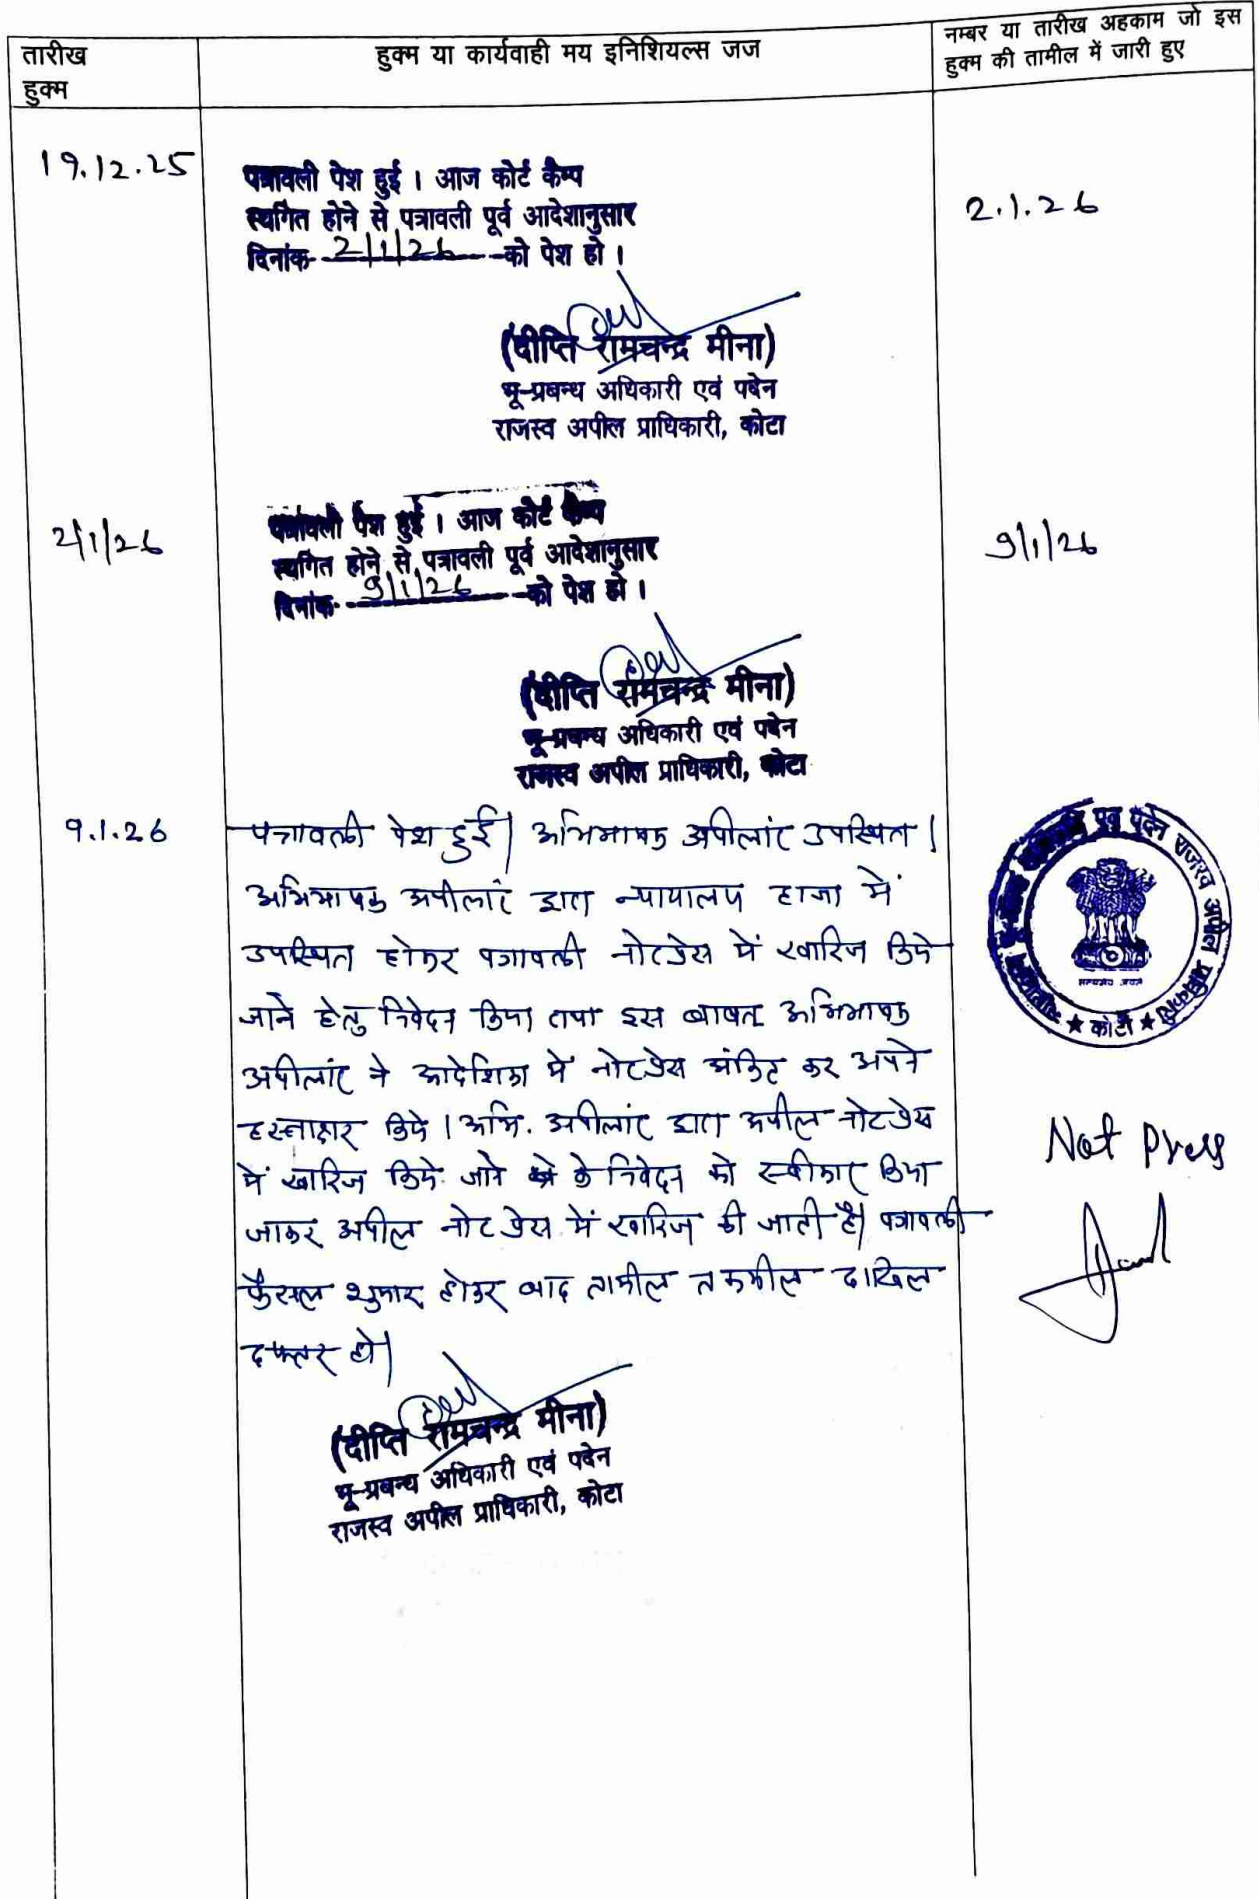 तारीख
हुक्म
हुक्म या कार्यवाही मय इनिशियल्स जज
नम्बर या तारीख अहकाम जो इस
हुक्म की तामील में जारी हुए
19.12.25
पत्रावली पेश हुई । आज कोर्ट कैम्प
स्थगित होने से पत्रावली पूर्व आदेशानुसार
दिनांक 2/1/26 को पेश हो ।
2.1.26
(दीप्ति रामचन्द्र मीना)
भू-प्रबन्ध अधिकारी एवं पदेन
राजस्व अपील प्राधिकारी, कोटा
2/1/26
पत्रावली पेश हुई । आज कोर्ट कैम्प
स्थगित होने से पत्रावली पूर्व आदेशानुसार
दिनांक 9/1/26 को पेश हो ।
9/1/26
(दीप्ति रामचन्द्र मीना)
भू-प्रबन्ध अधिकारी एवं पदेन
राजस्व अपील प्राधिकारी, कोटा
9.1.26
पत्रावली पेश हुई। अभिभाषक अपीलांट उपस्थित।
अभिभाषक अपीलांट द्वारा न्यायालय हाजा में
उपस्थित होकर पत्रावली नोटप्रेस में खारिज किये
जाने हेतु निवेदन किया तथा इस बाबत अभिभाषक
अपीलांट ने आदेशिका में नोटप्रेस अंकित कर अपने
हस्ताक्षर किये । अभि. अपीलांट द्वारा अपील नोटप्रेस
में खारिज किये जाने के निवेदन को स्वीकार किया
जाकर अपील नोटप्रेस में खारिज की जाती है। पत्रावली
फैसल शुमार होकर बाद तामील तकमील दाखिल
दफ्तर हो।
(दीप्ति रामचन्द्र मीना)
भू-प्रबन्ध अधिकारी एवं पदेन
राजस्व अपील प्राधिकारी, कोटा
एवं पदेन राजस्व अपील प्राधिकारी
सत्यमेव जयते
★ कोटा ★
Not Press